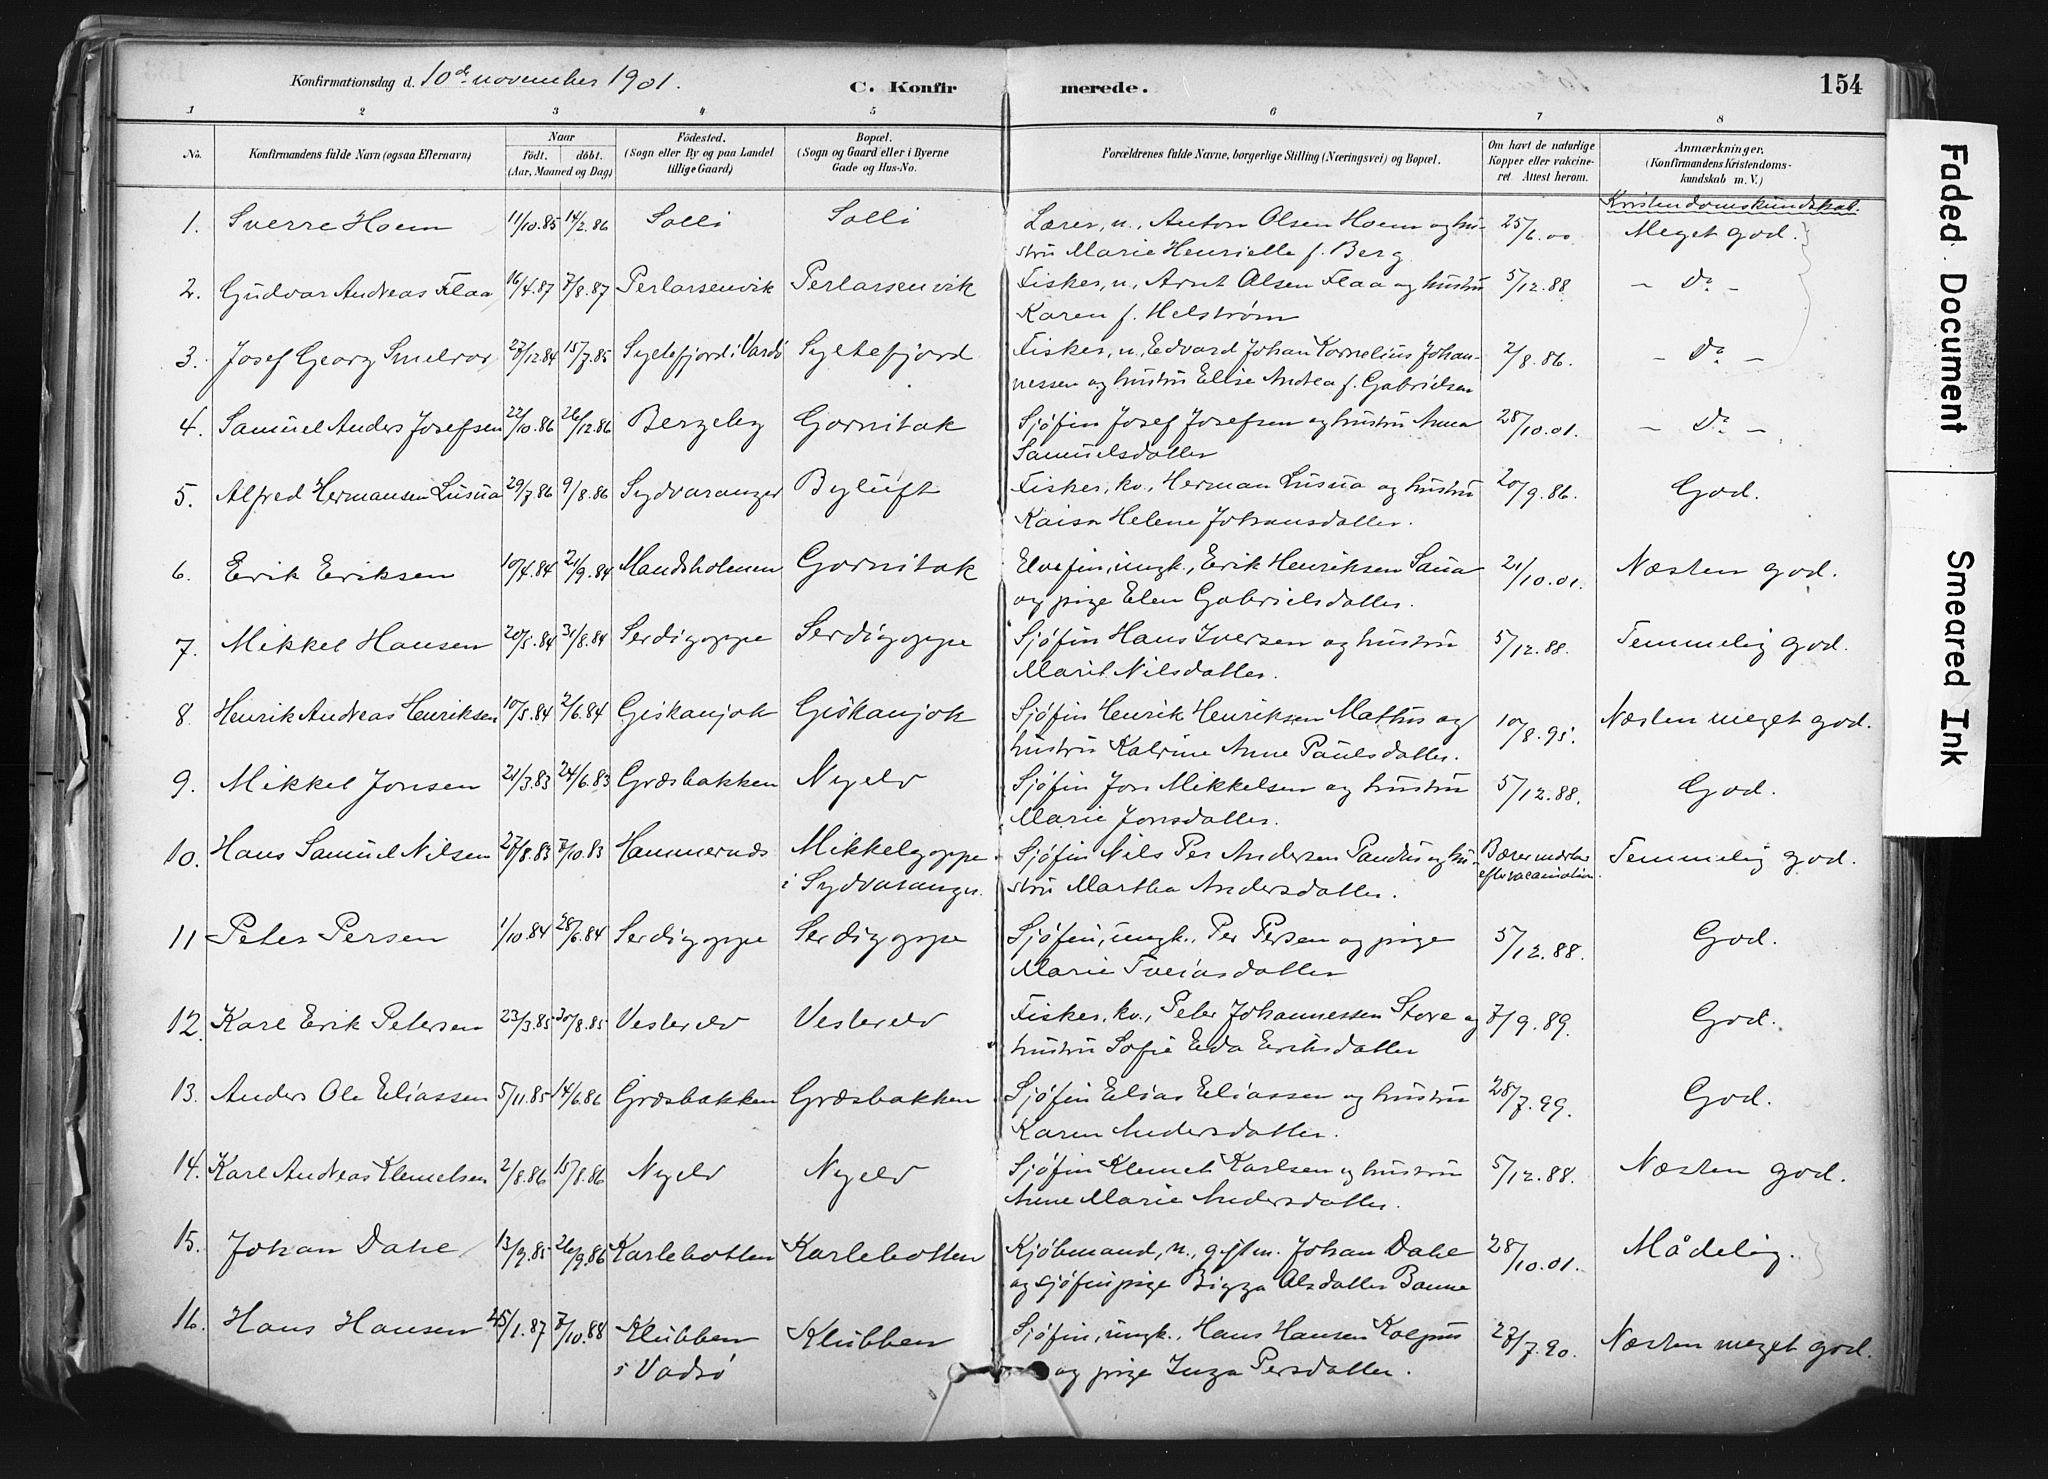 Konfirmationsdag d. 10de november 1901.
C. Konfirmerede.
154
1 2 3 4 5 6 7 8
No.
Konfirmandens fulde Navn (ogsaa Efternavn)
Naar
födt. döbt.
(Aar, Maaned og Dag)
Födested.
(Sogn eller By og paa Landet
tillige Gaard)
Bopæl.
(Sogn og Gaard eller i Byerne
Gade og Hus-No.
Forældrenes fulde Navne, borgerlige Stilling (Næringsvei) og Bopæl.
Om havt de naturlige
Kopper eller vakcine-
ret. Attest herom.
Anmærkninger.
(Konfirmandens Kristendoms-
kundskab m. V.)
Kristendomskundskab.
1. Sverre Hoem 11/10.85 14/2.86 Solli Solli Lærer, n., Anton Olsen Hoem og hu- 25/6.00 Meget god.
stru Marie Henriette f. Berg
2. Gudvar Andreas Flaa 16/4.87 7/8.87 Perlarsenvik Perlarsenvik Fisker, n., Arnt Olsen Flaa og hustru 5/12.88 - Do -
Karen f. Helstrøm
3. Josef Georg Smelror 27/12.84 15/7.85 Syltefjord i Vardø Syltefjord Fisker, n., Edvard Johan Kornelius Johan- 2/8.86. - Do -
nessen og hustru Elise Andrea f. Gabrielsen
4. Samuel Anders Josefsen 22/10.86 26/12.86 Bergeby Gornitak Sjøfin Josef Josefsen og hustru Anna 28/10.01. - Do -
Samuelsdatter
5. Alfred Hermansen Lusua 29/7.86 9/8.86 Sydvaranger Byluft Fisker, kv., Herman Lusua og hustru 20/9.86. God.
Kaisa Helene Johansdatter.
6. Erik Eriksen 10/4.84 21/9.84 Mandsholmen Gornitak Elvefin, ungk., Erik Henriksen Saua 21/10.01. Næsten god.
og pige Elen Gabrielsdatter.
7. Mikkel Hansen 20/5.84 31/8.84 Serdigoppe Serdigoppe Sjøfin Hans Iversen og hustru 5/12.88. Temmelig god.
Marit Nilsdatter.
8. Henrik Andreas Henriksen 10/5.84 2/6.84 Giskanjok Giskanjok Sjøfin Henrik Henriksen Mathus og 10/8.95. Næsten meget god.
hustru Katrine Anne Paulsdatter.
9. Mikkel Jonsen 21/3.83 24/6.83 Græsbakken Nyelv Sjøfin Jon Mikkelsen og hustru 5/12.88. God.
Marie Jonsdatter.
10. Hans Samuel Nilsen 27/8.83 7/10.83 Hammernæs Mikkelgoppe Sjøfin Nils Per Andersen Pandus og hu- Bærer mærker Temmelig god.
i Sydvaranger. stru Martha Andersdatter. efter vaccination.
11 Peter Persen 1/10.84 28/6.84 Serdigoppe Serdigoppe Sjøfin, ungk., Per Persen og pige 5/12.88. God.
Marie Tveiasdatter
12. Karl Erik Petersen 23/3.85 30/8.85 Vesterelv Vesterelv Fisker, kv., Peter Johannessen Store og 7/9.89. God.
hustru Sofie Eva Eriksdatter
13. Anders Ole Eliassen 5/11.85 14/6.86 Græsbakken Græsbakken Sjøfin Elias Eliassen og hustru 28/7.99. God.
Karen Andersdatter.
14. Karl Andreas Klemetsen 2/8.86 15/8.86 Nyelv Nyelv Sjøfin Klemet Karlsen og hustru 5/12.88. Næsten god.
Anne Marie Andersdatter.
15. Johan Dahl 13/9.85 26/9.86 Karlebotten Karlebotten Kjøbmand, n., gift m. Johan Dahl 28/10.01. Mådelig.
og sjøfinpige Bigga Olsdatter Banne
16. Hans Hansen 25/1.87 7/10.88 Klubben Klubben Sjøfin, ungk., Hans Hansen Kolpus 27/7.90. Næsten meget god.
i Vadsø og pige Inga Persdatter.
Faded Document
Smeared Ink